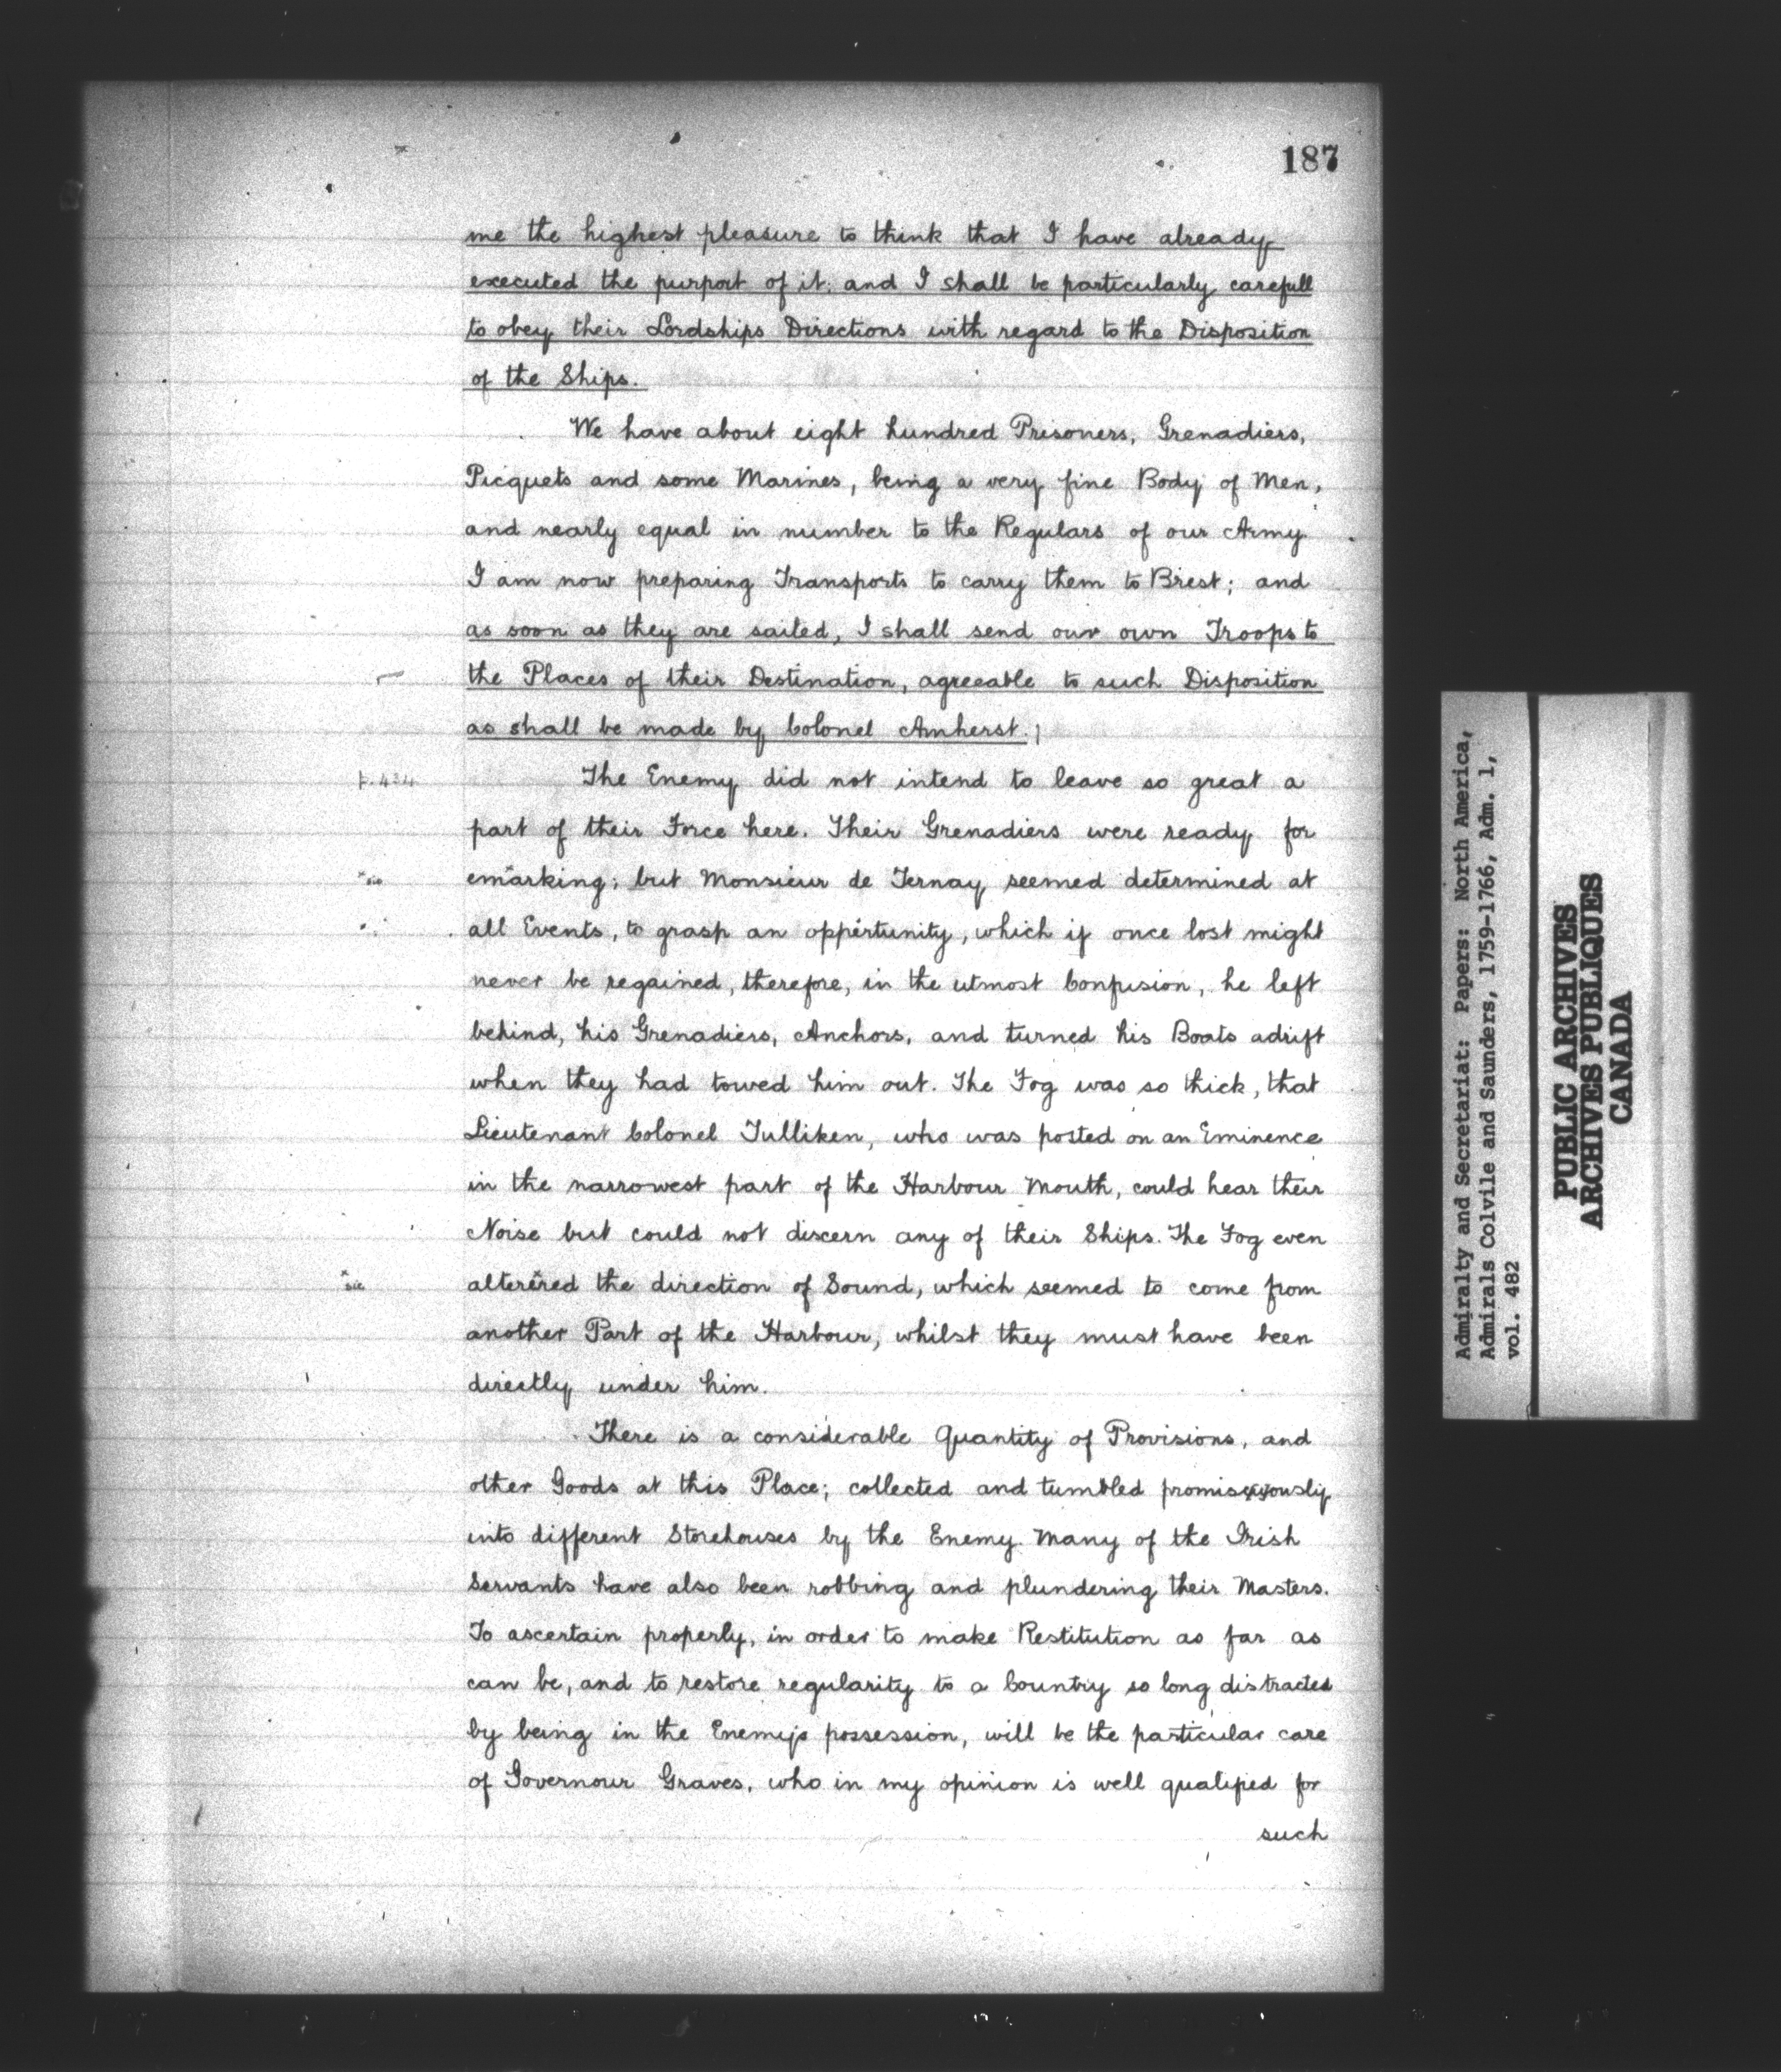 187
me the highest pleasure to think that I have already
executed the purport of it; and I shall be particularly carefull
to obey their Lordships Directions with regard to the Disposition
of the Ships.
We have about eight hundred Prisoners, Grenadiers,
Picquets and some Marines, being a very fine Body of Men,
and nearly equal in number to the Regulars of our Army
I am now preparing Transports to carry them to Brest; and
as soon as they are sailed, I shall send our own Troops to
the Places of their Destination, agreeable to such Disposition
as shall be made by Colonel Amherst.
p. 434
The Enemy did not intend to leave so great a
part of their Force here. Their Grenadiers were ready for
*sic
emarking; but Monsieur de Ternay seemed determined at
all Events, to grasp an oppertunity, which if once lost might
never be regained, therefore, in the utmost Confusion, he left
behind, his Grenadiers, Anchors, and turned his Boats adrift
when they had towed him out. The Fog was so thick, that
Lieutenant Colonel Tulliken, who was posted on an Eminence
in the narrowest part of the Harbour Mouth, could hear their
Noise but could not discern any of their Ships. The Fog even
*sic
alterered the direction of Sound, which seemed to come from
another Part of the Harbour, whilst they must have been
directly under him.
There is a considerable Quantity of Provisions, and
other Goods at this Place; collected and tumbled
into different Storehouses by the Enemy. Many of the Irish
Servants have also been robbing and plundering their Masters.
To ascertain properly, in order to make Restitution as far as
can be, and to restore regularity to a Country so long distracted
by being in the Enemys possession, will be the particular care
of Governour Graves, who in my opinion is well qualified for
such
Admiralty and Secretariat: Papers: North America,
Admirals Colvile and Saunders, 1759-1766, Adm. 1,
vol. 482
PUBLIC ARCHIVES
ARCHIVES PUBLIQUES
CANADA